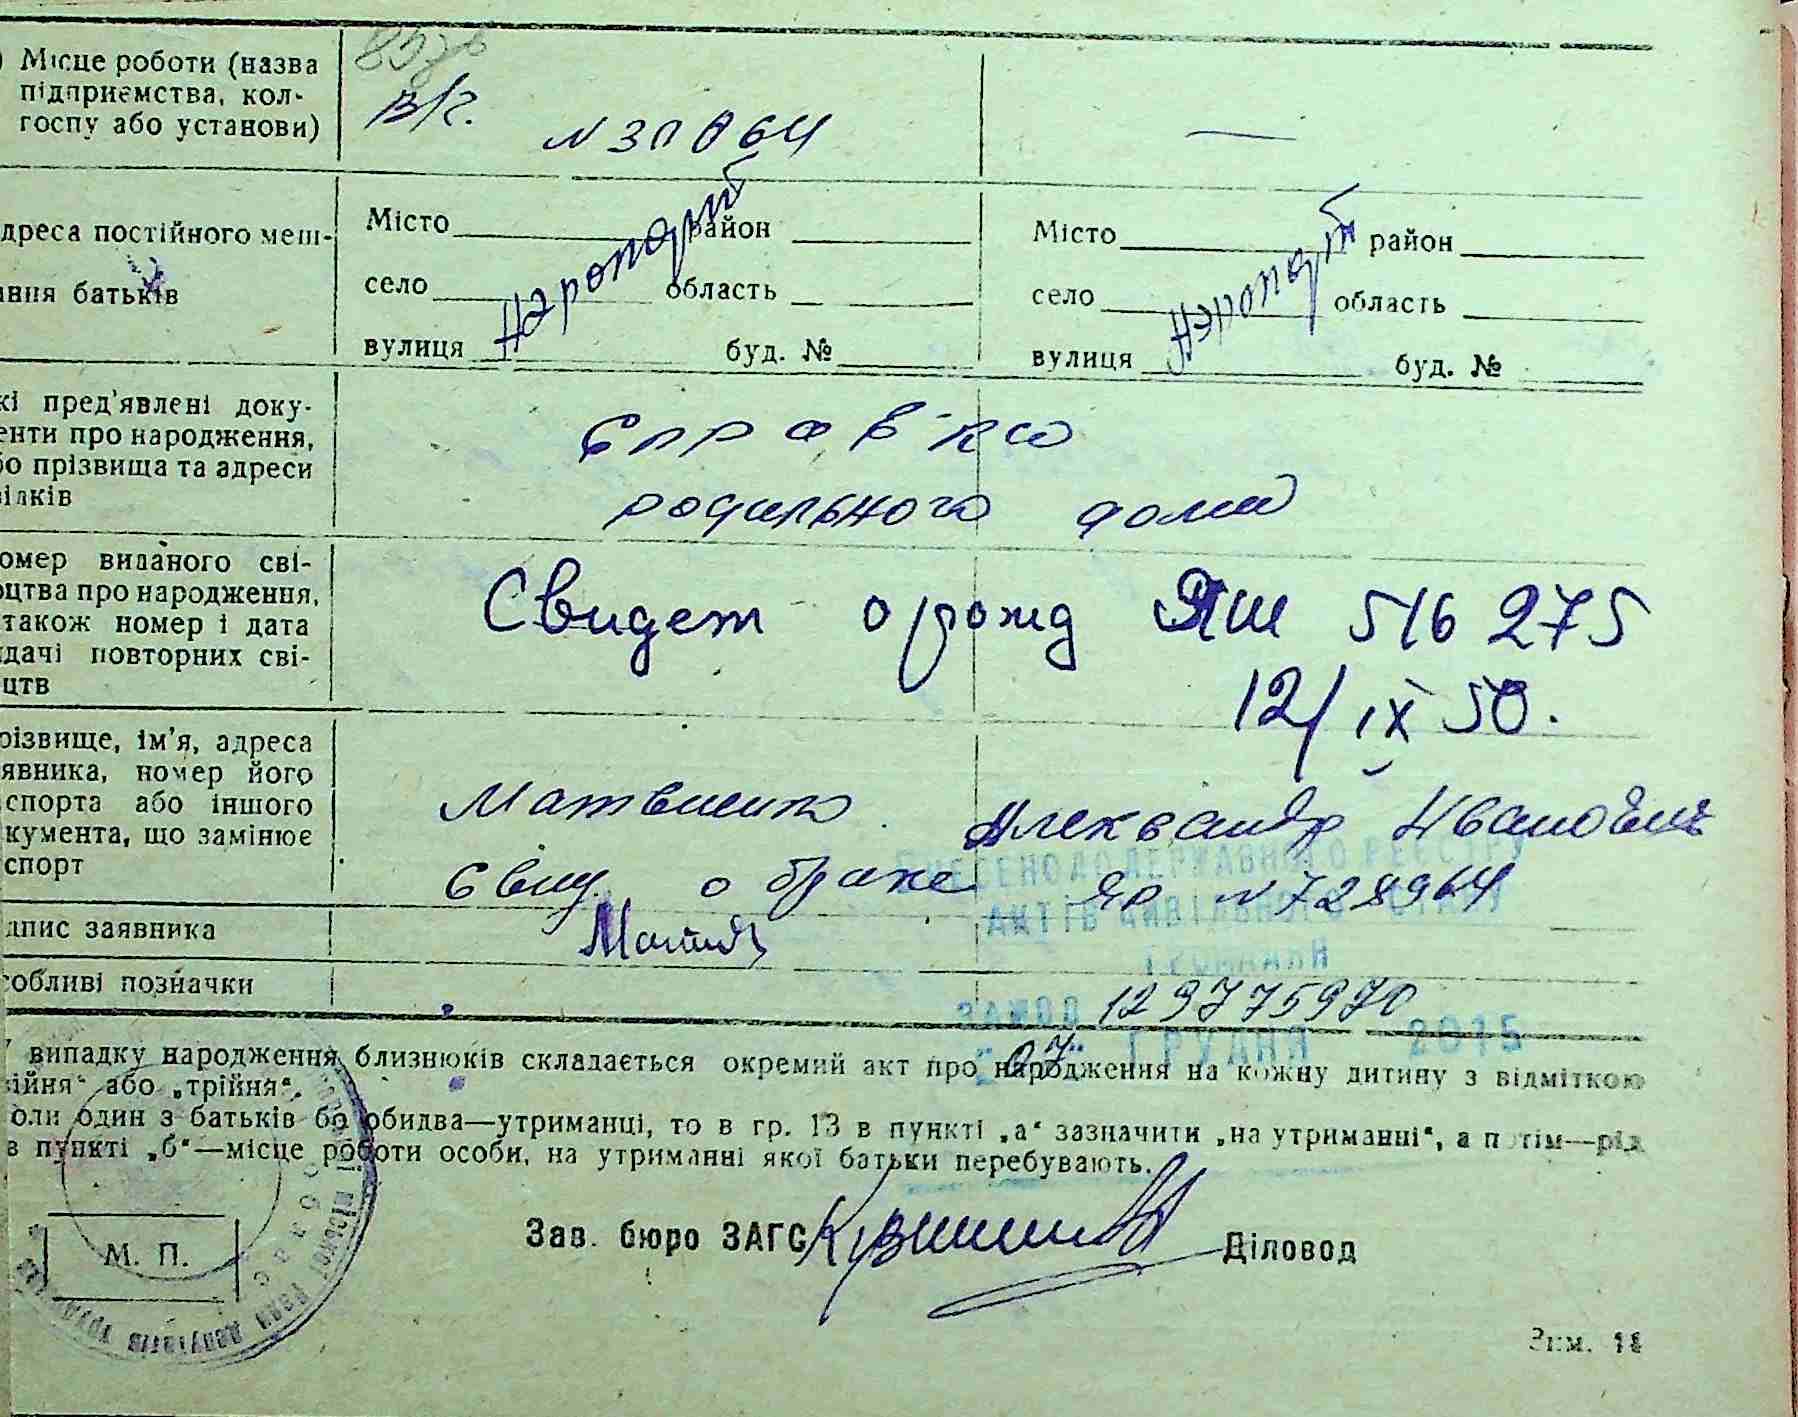 ) Місце роботи (назва
підприємства, кол-
госпу або установи)
в/г. N ЗП 064 —
дреса постійного меш-
ння батьків
Місто район Місто район
село область село область
вулиця буд. № вулиця буд. №
Аэропорт Аэропорт
кі пред'явлені доку-
енти про народження,
бо прізвища та адреси
ідків
Справка
родильного дома
омер виданого сві-
оцтва про народження,
також номер і дата
дачі повторних сві-
цтв
Свидет о рожд ЯШ 516275
12/IX 50.
різвище, ім'я, адреса
явника, номер його
спорта або іншого
кумента, що замінює
спорт
Матвиенко Александр Иванович
Свид. о браке ЯР N 728964
дпис заявника
собливі позначки
ВНЕСЕНО ДО ДЕРЖАВНОГО РЕЄСТРУ
АКТІВ ЦИВІЛЬНОГО СТАНУ
ГРОМАДЯН
ЗА №00 129775970
"07" ГРУДНЯ 2015
У випадку народження близнюків складається окремий акт про народження на кожну дитину з відміткою
ійня" або „трійня".
оли один з батьків бо обидва—утриманці, то в гр. 13 в пункті „а" зазначити „на утриманні", а потім—рід
в пункті „б"—місце роботи особи, на утриманні якої батьки перебувають.
Зав. бюро ЗАГС Діловод
М. П.
Зам. 18